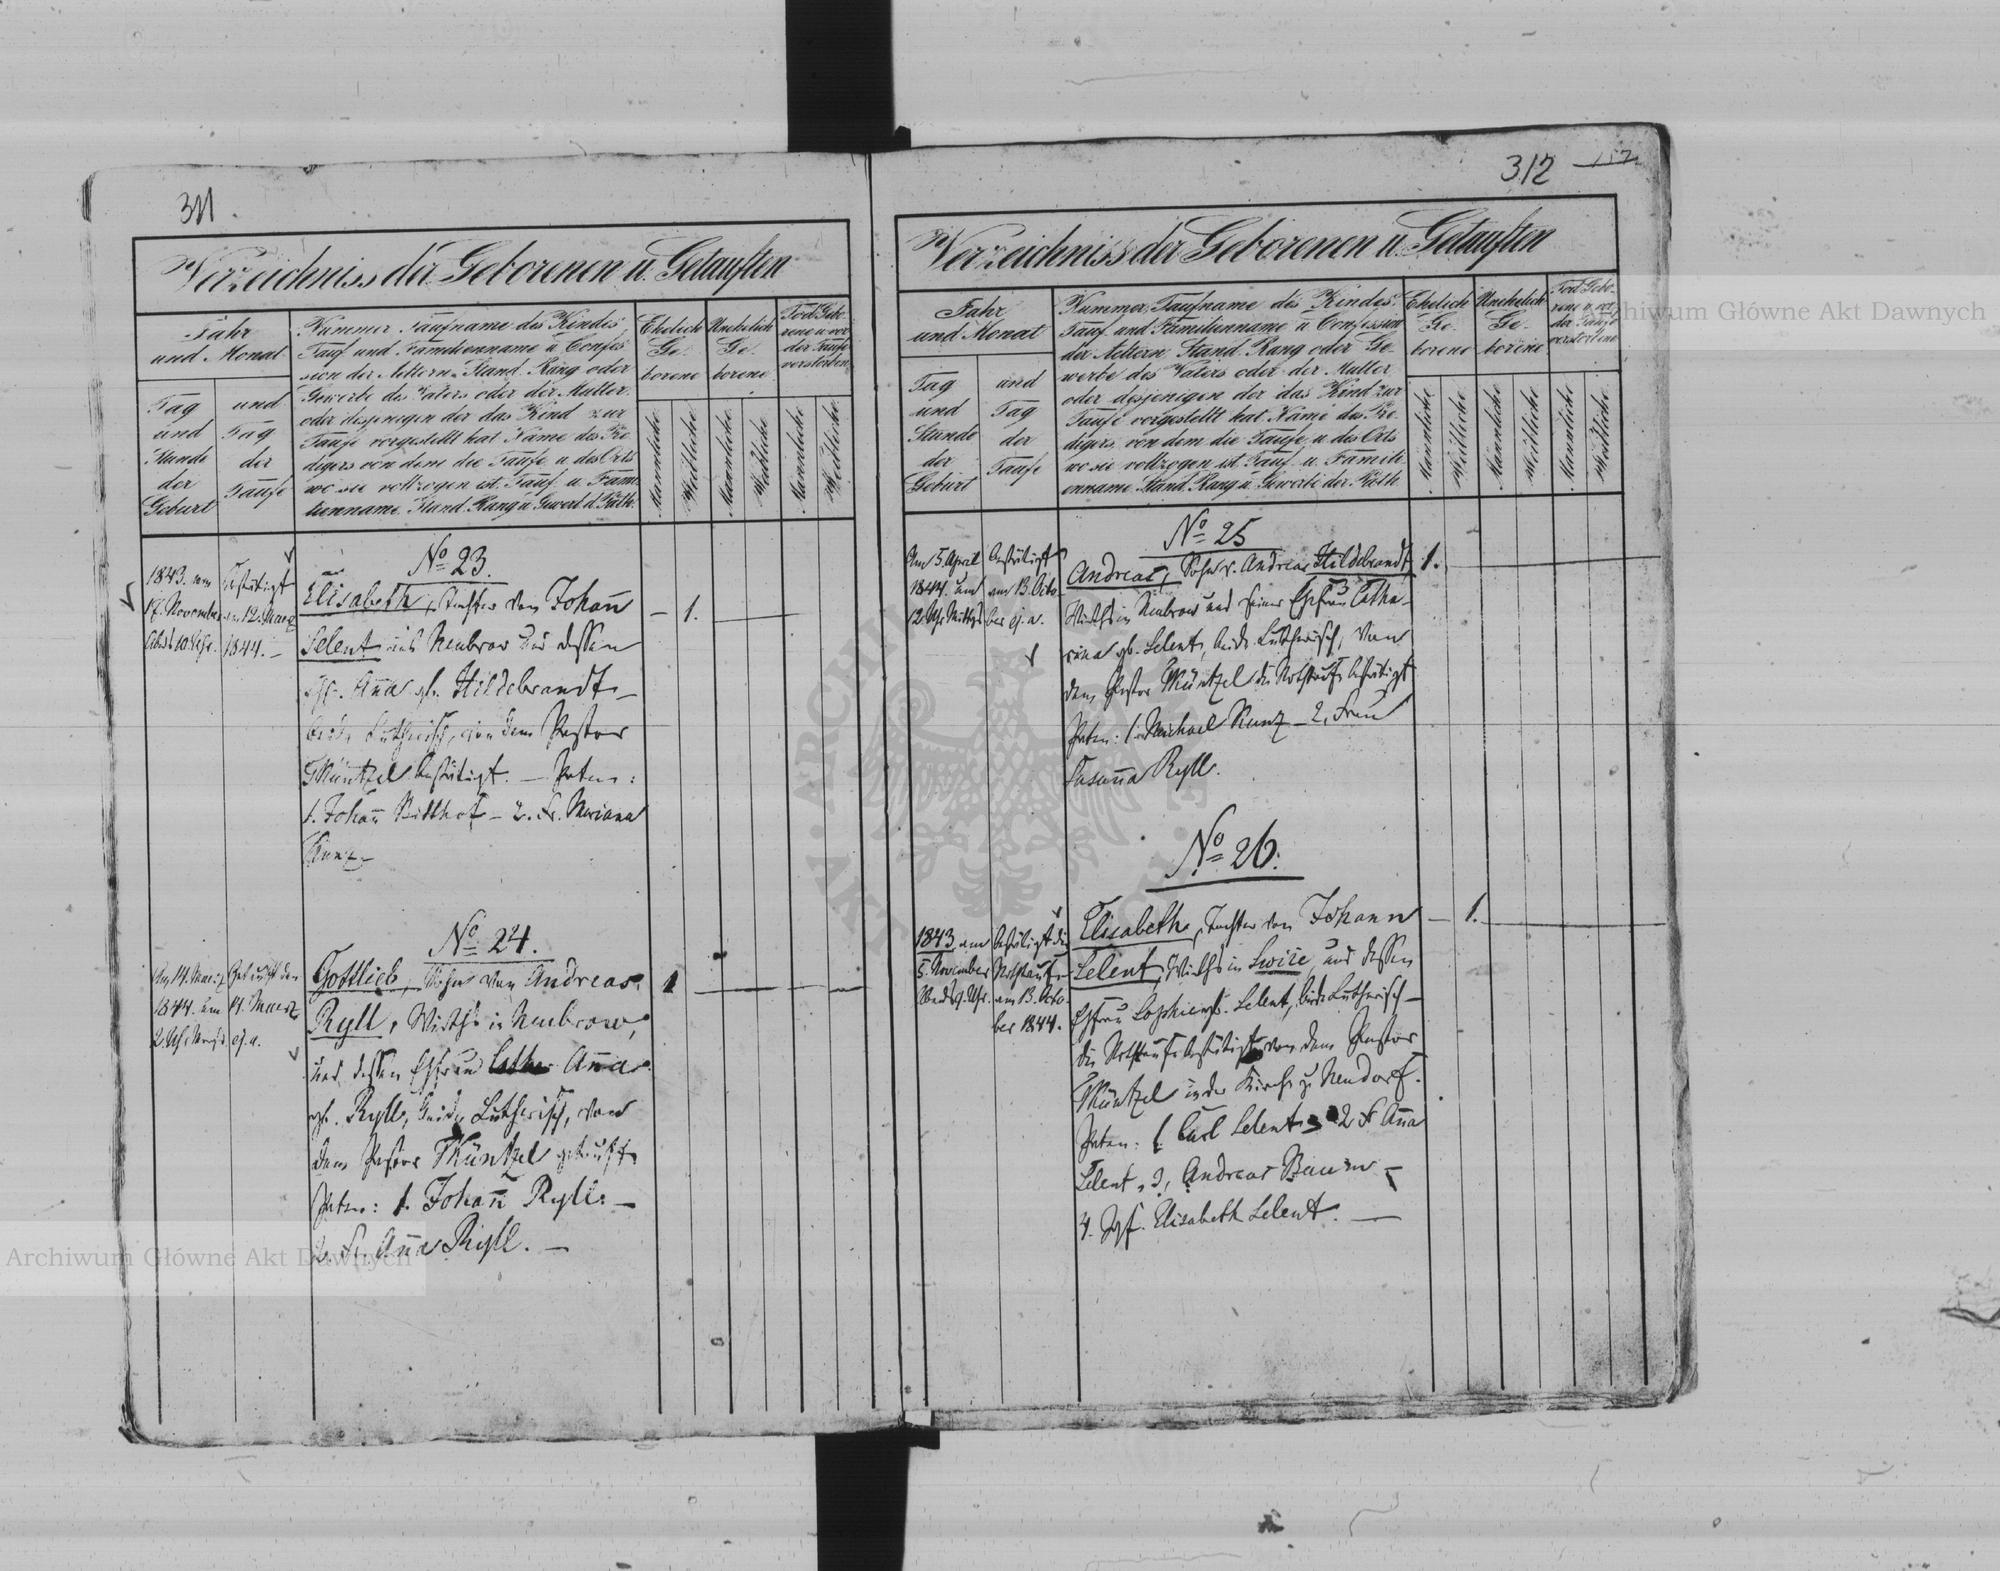 311.
Verzeichniss der Geborenen u. Getauften
Jahr
und Monat
Tag
und
Stunde
der
Geburt
und
Tag
der
Taufe
Nummer Taufname des Kindes
Tauf und Familienname u Confes
sion der Aeltern Stand Rang oder
Gewerbe des Vaters oder der Mutter
oder desjenigen der das Kind zur
Taufe vorgestellt hat Name des Pre
digers von dem die Taufe u des Orts
wo sie vollzogen ist. Tauf u. Fami
lienname Stand Rang u Gewerb d. Path.
Ehelich
Ge-
borene
Unehelich
Ge-
borene
Todt Gebo-
rene u vor
der Taufe
verstorben
Männliche
Weibliche
Männliche
Weibliche
Männliche
Weibliche
1843. am
17. November
Abds 10 Uhr.
Bestätigt
am 12. Maerz
1844. –
No 23.
Elisabeth, Tochter von Johann
Selent aus Neubrow und dessen
Ehefr. Anna gb. Hildebrandt –
beide Lutherisch, von dem Pastor
Müntzel bestätigt. – Paten:
1. Johann Bitthof – 2. Fr. Mariana
Kunz –
– 1.
Am 14. Maerz
1844. um
2 Uhr Morgs.
Getauft den
14. Maerz
ej. a.
No 24.
Gottlieb, Sohn von Andreas
Ryll, Wirths in Neubrow,
und dessen Ehefrau Anna
gb. Ryll, beide Lutherisch, von
dem Pastor Müntzel getauft
Paten: 1. Johann Ryll. –
2. Fr. Anna Ryll. –
1
312
Verzeichniss der Geborenen u. Getauften
Jahr
und Monat
Tag
und
Stunde
der
Geburt
und
Tag
der
Taufe
Nummer, Taufname des Kindes
Tauf und Familienname u Confession
der Aeltern Stand Rang oder Ge-
werbe des Vaters oder der Mutter
oder desjenigen der das Kind zur
Taufe vorgestellt hat Name des Pre
digers, von dem die Taufe u. des Orts
wo sie vollzogen ist Tauf u. Famili
enname Stand Rang u. Gewerbe der Path
Ehelich
Ge-
borene
Unehelich
Ge-
borene
Todt Gebo-
rene u. vor
der Taufe
verstorbene
Männliche
Weibliche
Männliche
Weibliche
Männliche
Weibliche
Am 5. April
1844. um
12 Uhr Mittgs
Bestätigt
am 13. Octo-
ber ej. a.
No 25
Andreas, Sohn v. Andreas Hildebrandt
Wirths in Neubrow und seiner Ehefrau Catha-
rina gb. Selent, beide Lutherisch, von
dem Pastor Müntzel die Nothtaufe bestätigt
Paten: 1. Michael Kunz – 2, Frau
Susanna Ryll.
1.
1843 am
5. November
Abds 9. Uhr.
Bestätigt die
Nothtaufe
am 13. Octo-
ber 1844.
No 26.
Elisabeth, Tochter von Johann
Selent, Wirths in Swirze, und dessen
Ehefrau Sophie gb. Selent, beide Lutherisch –
die Nothtaufe bestätigt von dem Pastor
Müntzel in der Kirche zu Neudorf.
Paten: 1. Carl Selent 2 Fr Anna
Selent, 3, Andreas Baum –
4. Jgf. Elisabeth Selent. –
– 1.
Archiwum Główne Akt Dawnych
Archiwum Główne Akt Dawnych